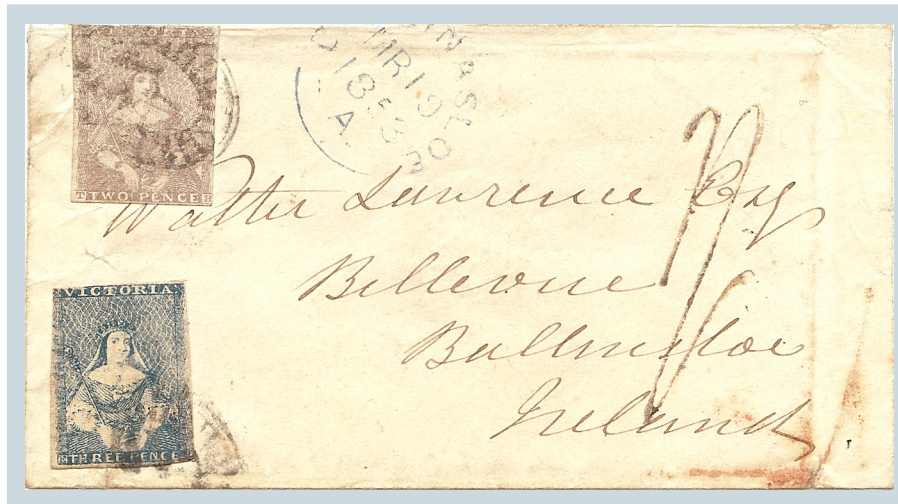 VICTORIA
TWO PENCE
NASLO
MR 19
1853
A
Walter Lawrence Esq
Bellevue
Ballinasloe
Ireland
VICTORIA
THREE PENCE